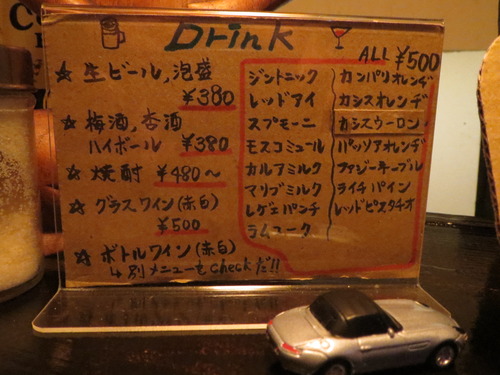 Drink
★ 生ビール, 泡盛
¥380
★ 梅酒, 杏酒
ハイボール ¥380
★ 焼酎 ¥480〜
★ グラスワイン(赤白)
¥500
★ ボトルワイン(赤白)
別メニューをcheckだ!!
ALL ¥500
ジントニック
レッドアイ
スプモーニ
モスコミュール
カルアミルク
マリブミルク
レゲエパンチ
ラムコーク
カンパリオレンヂ
カシスオレンヂ
カシスウーロン
パッソアオレンヂ
ファジーネーブル
ライチパイン
レッドピスタチオ